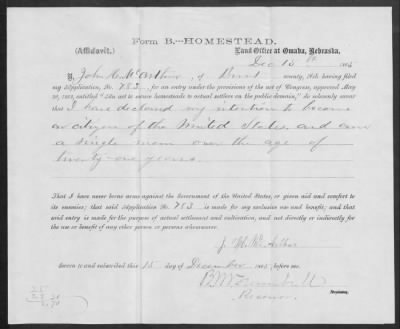 Form B.—HOMESTEAD.
(Affidavit.)
Land Office at Omaha, Nebraska,
Dec 15th
I, John H. McArthur, of Burt county, Neb having filed
my Application, No. 783, for an entry under the provisions of the act of Congress, approved May
20, 1862, entitled "An act to secure homesteads to actual settlers on the public domain," do solemnly swear
that I have declared my intention to become
a citizen of the United States, and am
a single man over the age of
twenty-one years
That I have never borne arms against the Government of the United States, or given aid and comfort to
its enemies; that said Application No. 783 is made for my exclusive use and benefit; and that
said entry is made for the purpose of actual settlement and cultivation, and not directly or indirectly for
the use or benefit of any other person or persons whomsoever.
J. H. McArthur
Sworn to and subscribed this 15 day of December before me.
Receiver.